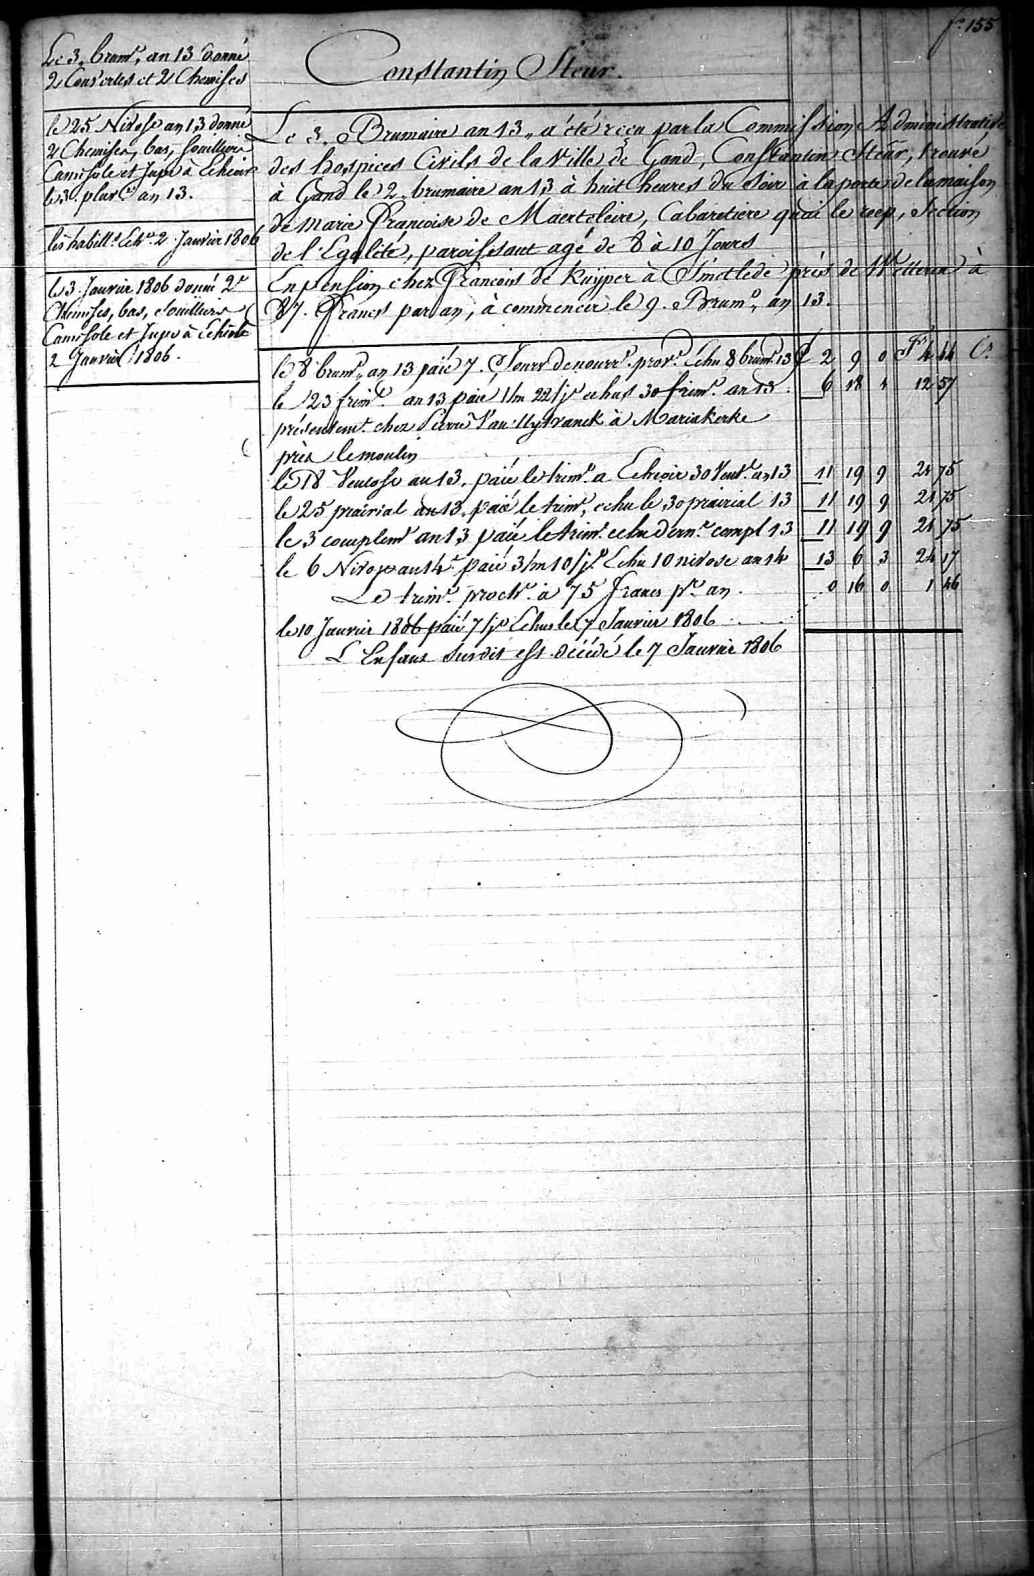 fo. 155
Constantin Steur.
Le 3. brumre. an 13 donné
2 Couvertes et 2 Chemises
le 25 Nivose an 13 donné
2 Chemises, bas, Souilliers
Camisole et Jupe à Echeoir
le 3. plus. an 13.
les habillts. Echus. 2 Janvier 1806
le 3 Janvier 1806 donné 2
Chemises, bas, Souilliers
Camisole et Jupe à Echéoir
2 Janvier 1806.
Le 3. Brumaire an 13. a été reçu par la Commission Administrative
des hospices Civils de la Ville de Gand, Constantin Steur, trouvé
à Gand le 2. brumaire an 13 à huit heures du Soir à la porte de la maison
de marie Françoise de Maerteleire, Cabaretiere quai le reep, Section
de l'Egalité, paroissant agé de 8 à 10 Jours
En pension chez François de Kuyper à Smetlede près de Wetteren à
87. Francs par an, à commencer le 9. Brumo. an 13.
le 8 brumo. an 13 paié 7. Jours de nourre. provre. Echu 8 brumo. 13 £ 2 9 0 Fs 4 44 Cs.
le 23 frimre. an 13 paié 1/m 22/js echus 30 frimre. an 13 6 18 4 12 57
présentemt. chez Pierre Van Uytvanck à Mariakerke
près le moulin
le 18 Ventose an 13. paié le trimre. a Echeoir 30 Vente. an 13 11 19 9 21 75
le 25 prairial an 13. paié le trimre. echu le 30 prairial 13 11 19 9 21 75
le 3 complemt. an 13 paié le trimre. echu dernr. compl 13 11 19 9 21 75
le 6 Nivose an 14. paié 3/m 10/js Echu 10 nivose an 14 13 6 3 24 17
Le trimre. prochn. à 75 Francs pr. an.
le 10 Janvier 1806 paié 7/js Echus le 7 Janvier 1806 0 16 0 1 46
L'Enfant Susdit est décédé le 7 Janvier 1806